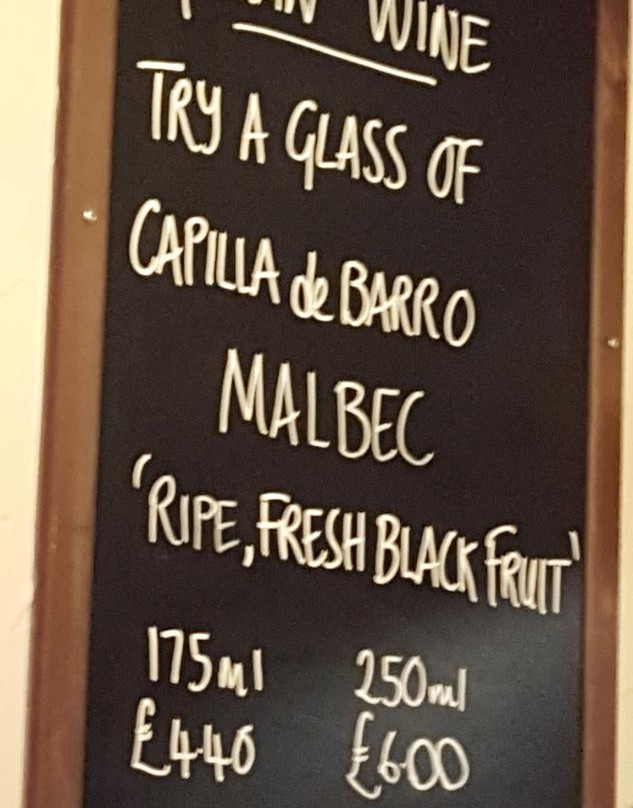 WINE
TRY A GLASS OF
CAPILLA de BARRO
MALBEC
'RIPE, FRESH BLACK FRUIT'
175ml 250ml
£4.40 £6.00